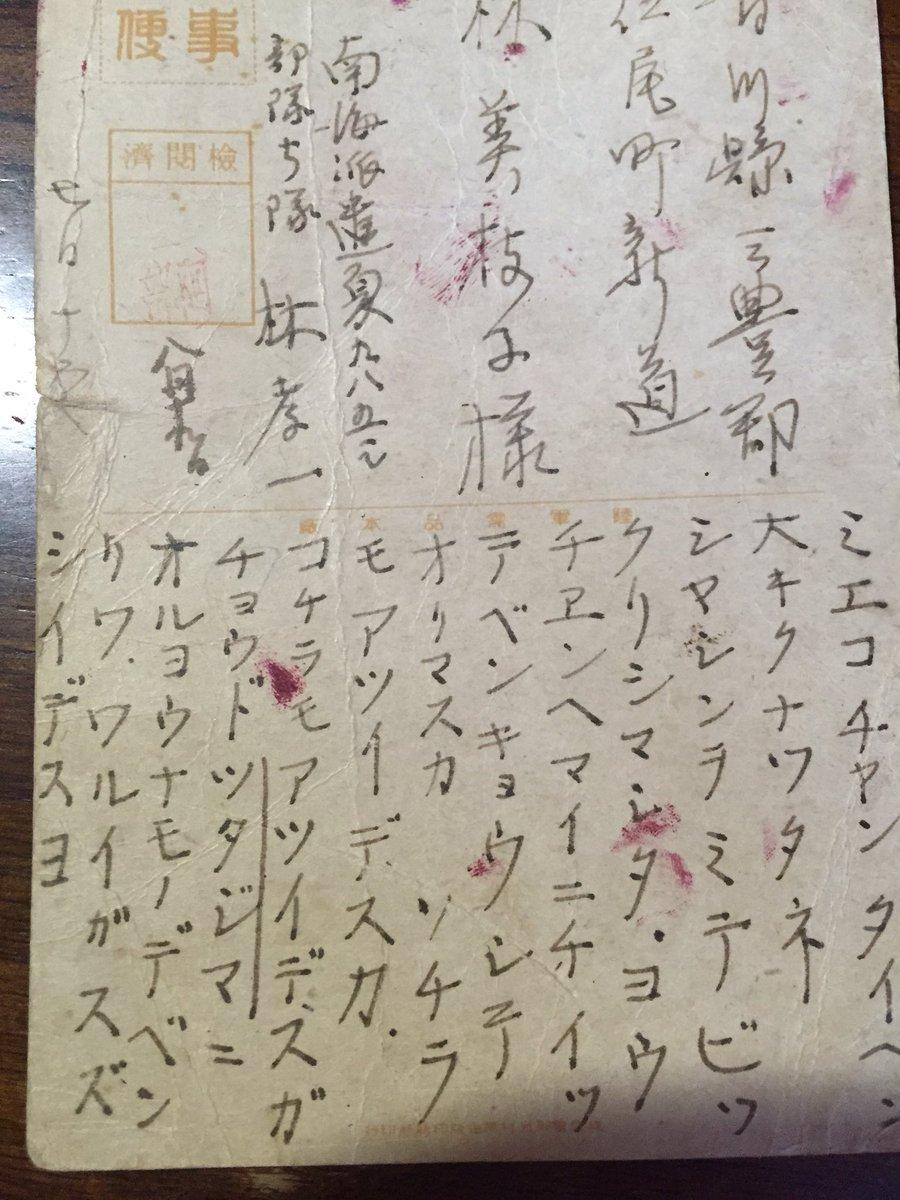 事
便
川縣三豊郡
尾町新道
林 美枝子様
南海派遣夏九八五二
部隊ち隊 林 孝一
檢閲濟
陸軍
ミエコチャン タイヘン
大キクナツタネ
シヤシンヲミテビツ
クリシマシタ.ヨウ
チエンヘマイニチイツ
テベンキョウシテ
オリマスカ ソチラ
モアツイデスカ.
コチラモアツイデスガ
チョウドツタジマニ
オルヨウナモノデベン
リワ.ワルイガスズ
シイデスヨ